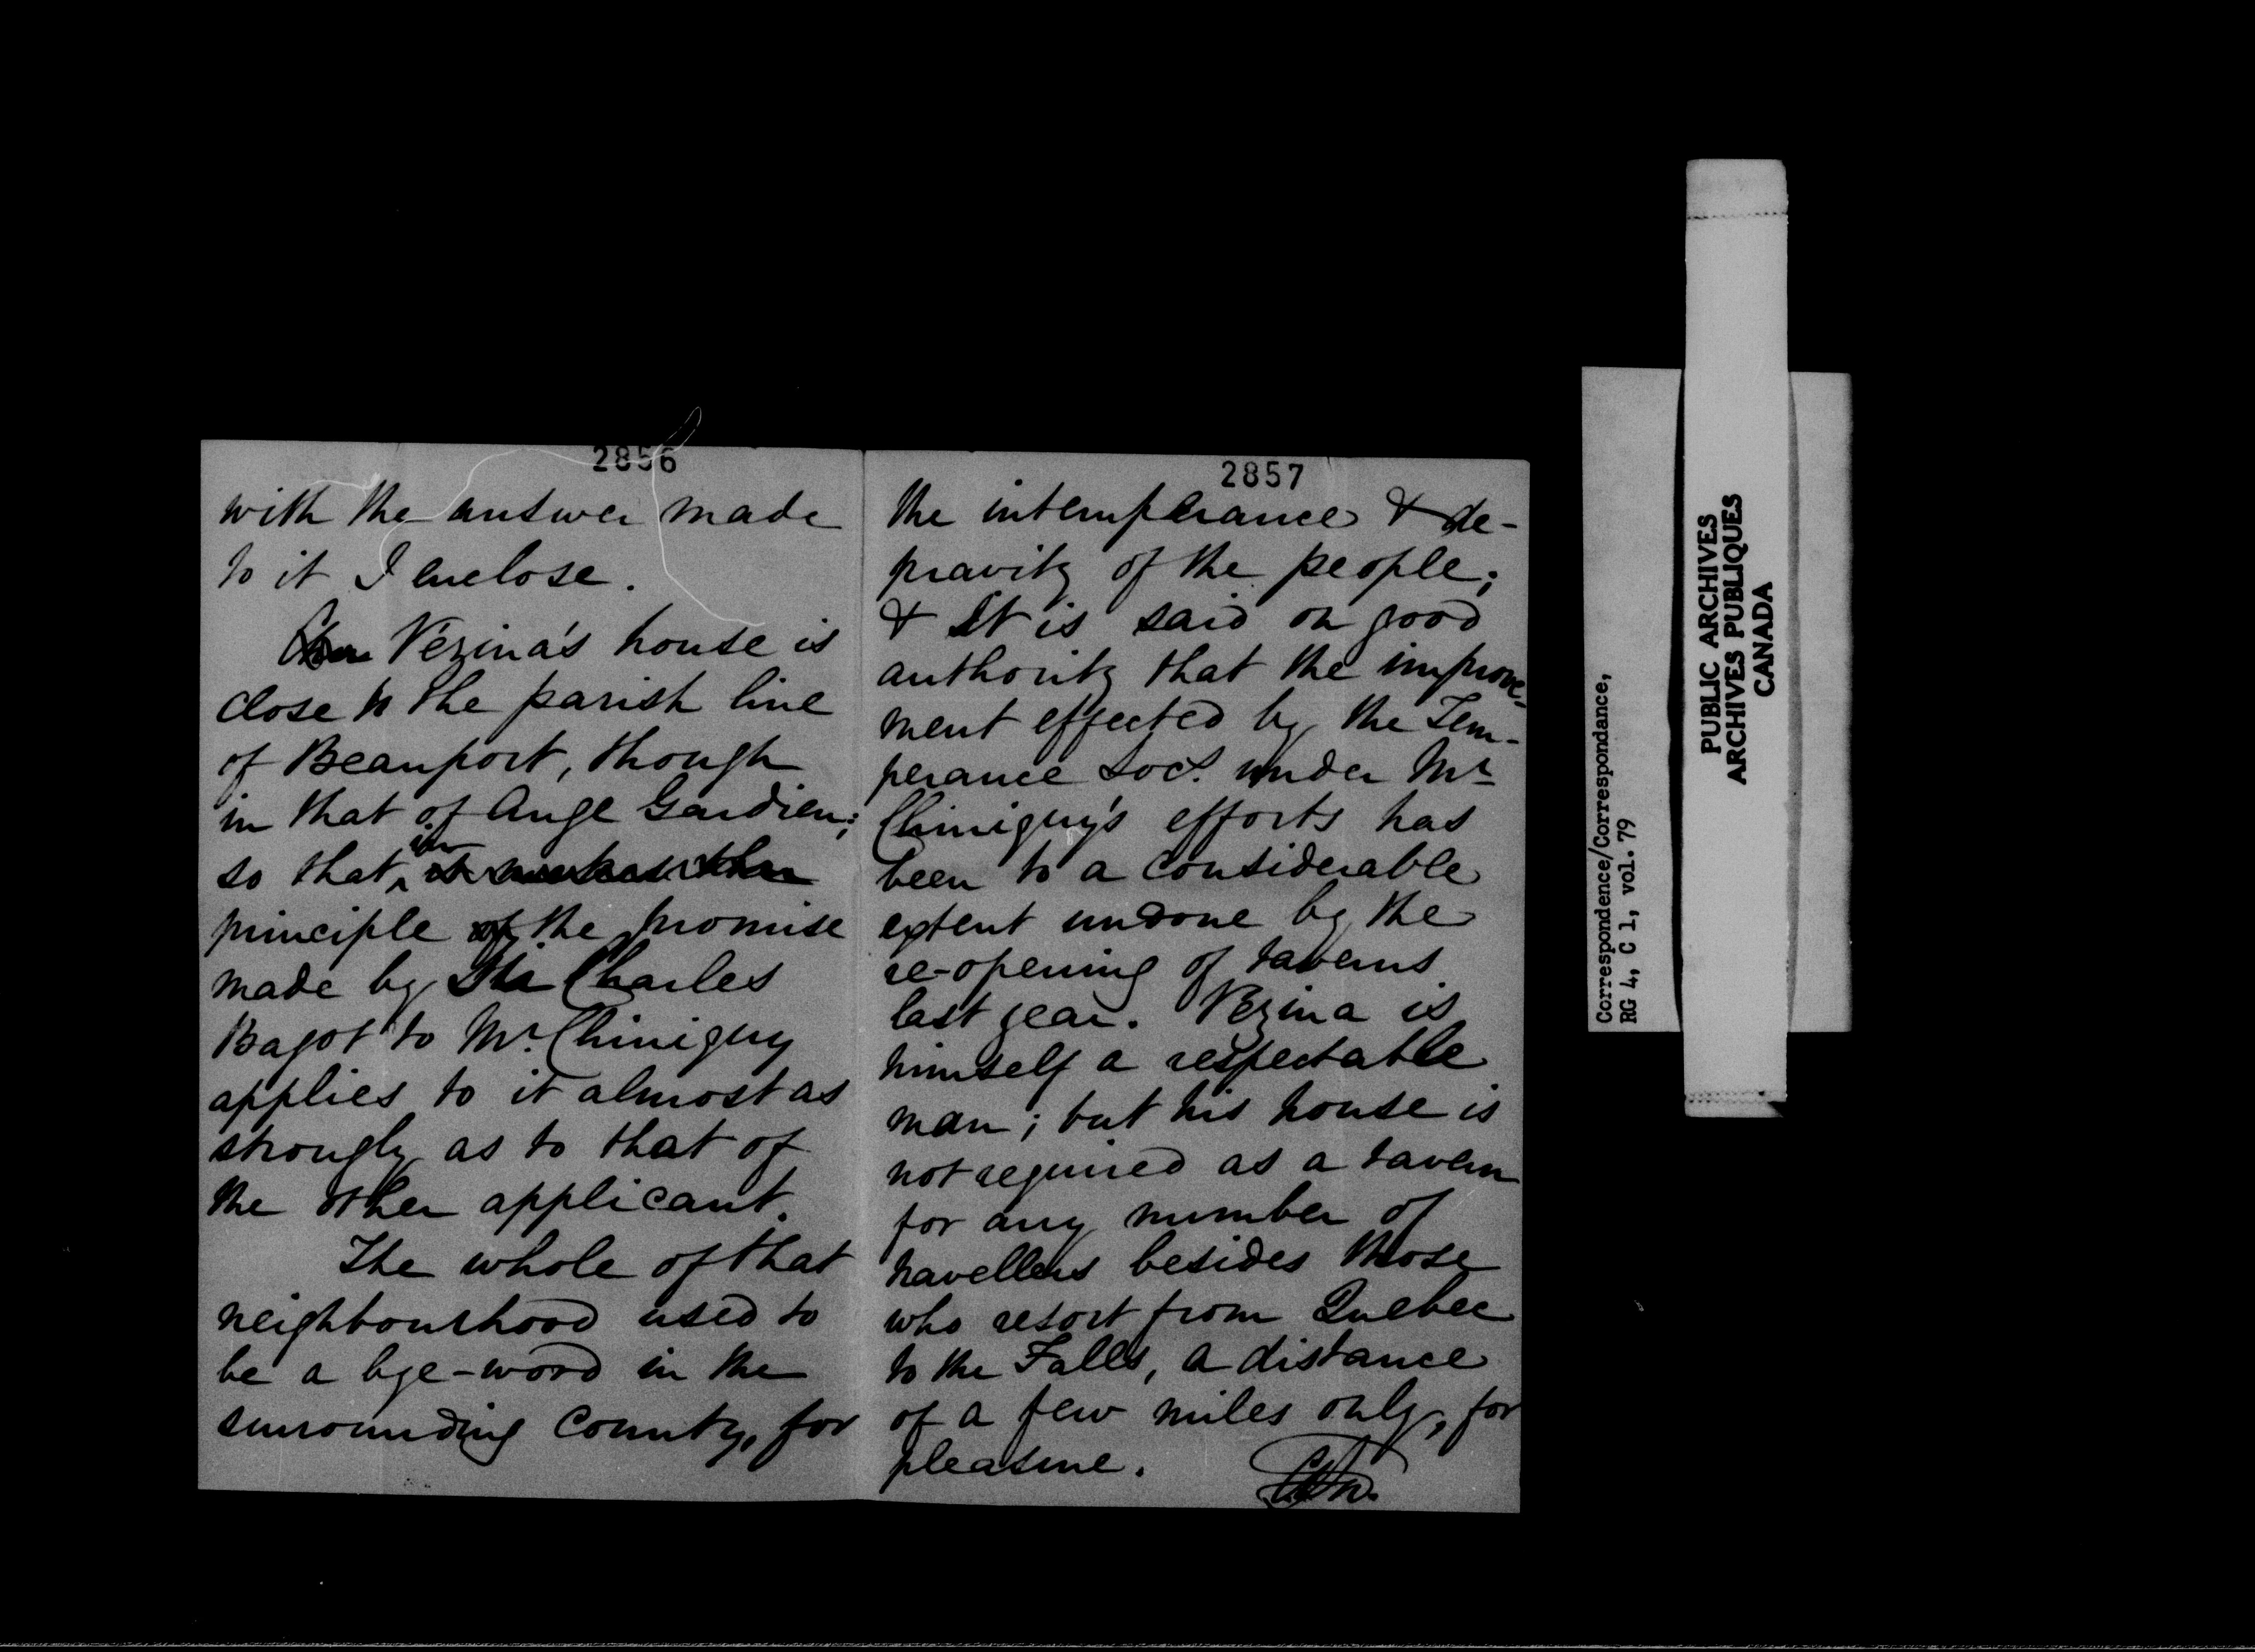 2856
with the answer made
to it I enclose.
Vézina's house is
close to the parish line
of Beauport, though
in that of Ange Gardien;
so that, in
principle the promise
made by Sir Charles
Bagot to Mr. Chiniquy
applies to it almost as
strongly as to that of
the other applicant.
The whole of that
neighbourhood used to
be a bye-word in the
surrounding County, for
2857
the intemperance & de-
pravity of the people;
& It is said on good
authority that the improve-
ment effected by the Tem-
perance Socy. under Mr
Chiniquy's efforts has
been to a considerable
extent undone by the
re-opening of taverns
last year. Vezina is
himself a respectable
man; but his house is
not required as a tavern
for any number of
travellers besides those
who resort from Quebec
to the Falls, a distance
of a few miles only, for
pleasure.
Correspondence/Correspondance,
RG 4, C 1, vol. 79
PUBLIC ARCHIVES
ARCHIVES PUBLIQUES
CANADA